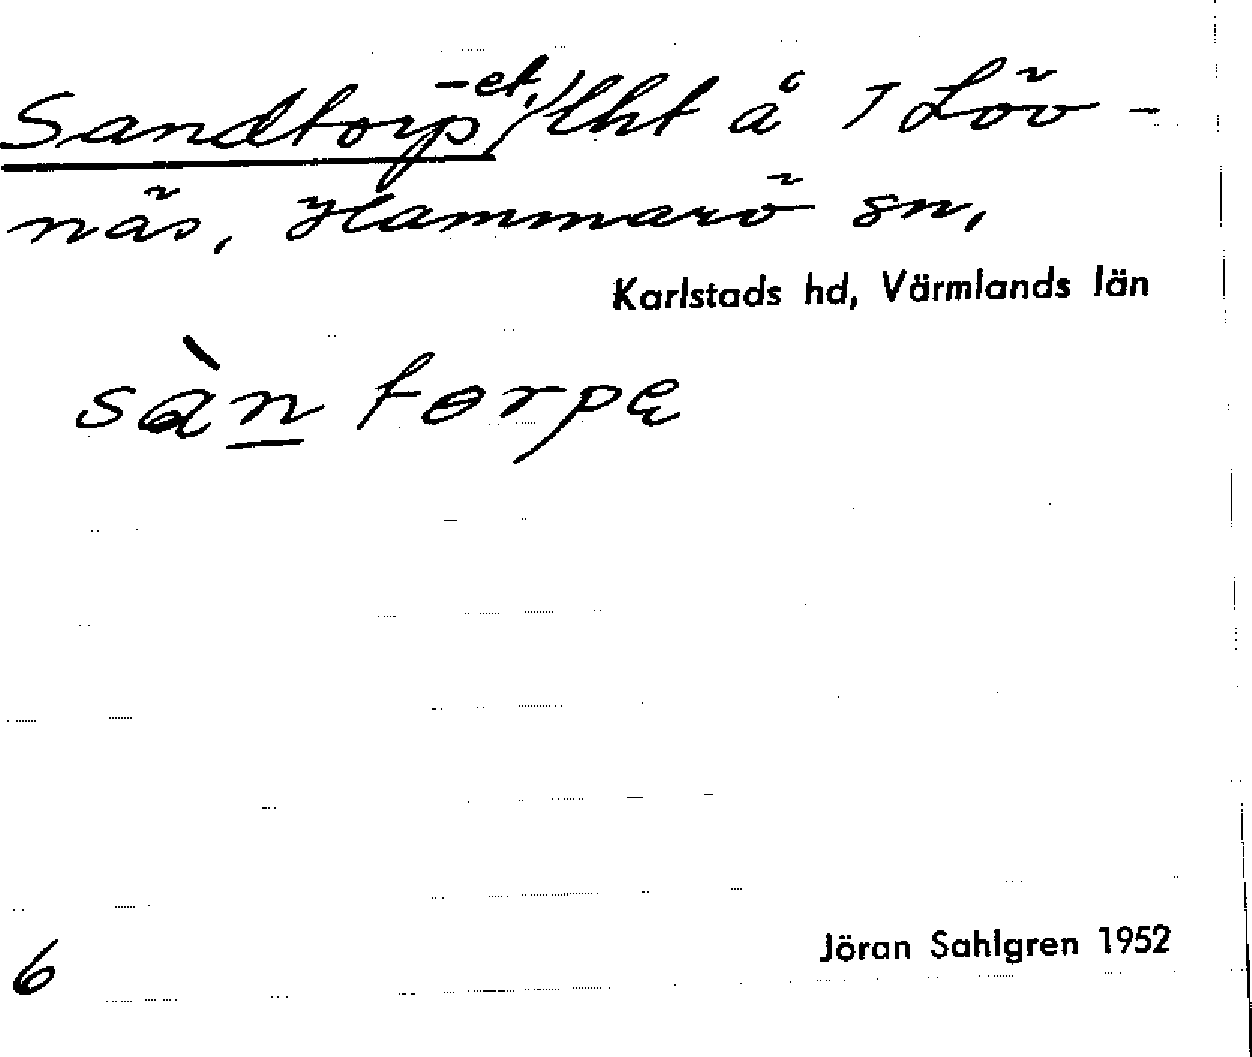 Sandtorp, -et, lht å 1 Löv-
näs, Hammarö sn,
Karlstads hd, Värmlands län
sàn tɵrpę
Jöran Sahlgren 1952
6